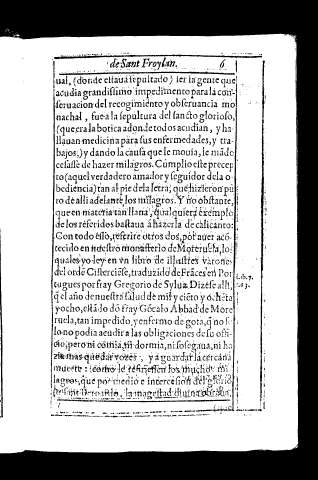 de Sant Froylan. 6
ual, (donde estaua sepultado) ser la gente que
acudia grandissimo impedimento para la con-
seruacion del recogimiento y obseruancia mo
nachal, fue a la sepultura del sancto glorioso,
(que era la botica adonde todos acudian, y ha
llauan medicina para sus enfermedades, y tra
bajos,) y dando la causa que le mouia, le mādo
cessasse de hazer milagros. Cumplio este precep
to (aquel verdadero amador y seguidor de la o
bediencia) tan al pie de la letra, que hizieron pū
to de alli adelante los milagros. Y no obstante,
que en materia tan llana, qualquiera exemplo
de los referidos bastaua à hazerla de calicanto:
Con todo esso, referire otros dos, por auer aco
tecido en nuestro monasterio de Moreruela, lo
quales yo ley en vn libro de illustres varones
del ordē Cisterciēse, traduzido de Frāces en Por
tugues por fray Gregorio de Sylua. Dizese alli,
q̄ el año de nuestra salud de mil y ciēto y ochēta
y ocho, estādo fray Gōçalo Abbad de More
ruela, tan impedido, y enfermo de gota, q̄ no so
lo no podia acudir a las obligaciones de su offi-
cio, pero ni comia, ni dormia, ni sosegaua, ni ha
zia mas que dar vozes, y aguardar la cercana
muerte: como le refiriessen los muchos mi
lagros, que por medio e intercesion del glorio
la magestad diuina obraua,
Lib. 7.